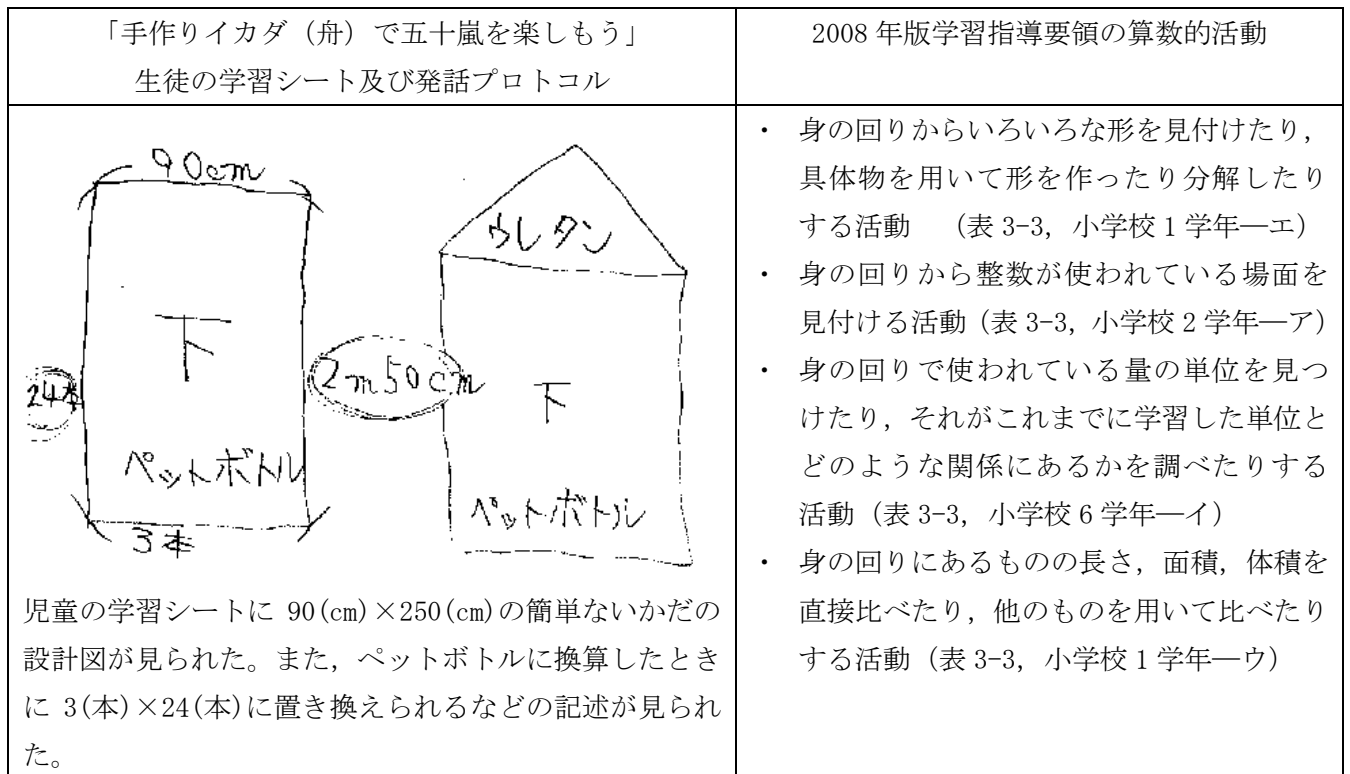 「手作りイカダ（舟）で五十嵐を楽しもう」
生徒の学習シート及び発話プロトコル
2008 年版学習指導要領の算数的活動
90cm
下
24本
ペットボトル
3本
2m50cm
ウレタン
下
ペットボトル
児童の学習シートに 90(cm)×250(cm)の簡単ないかだの
設計図が見られた。また，ペットボトルに換算したとき
に 3(本)×24(本)に置き換えられるなどの記述が見られ
た。
・ 身の回りからいろいろな形を見付けたり，
具体物を用いて形を作ったり分解したり
する活動 （表 3-3，小学校 1 学年―エ）
・ 身の回りから整数が使われている場面を
見付ける活動（表 3-3，小学校 2 学年―ア）
・ 身の回りで使われている量の単位を見つ
けたり，それがこれまでに学習した単位と
どのような関係にあるかを調べたりする
活動（表 3-3，小学校 6 学年―イ）
・ 身の回りにあるものの長さ，面積，体積を
直接比べたり，他のものを用いて比べたり
する活動（表 3-3，小学校 1 学年―ウ）